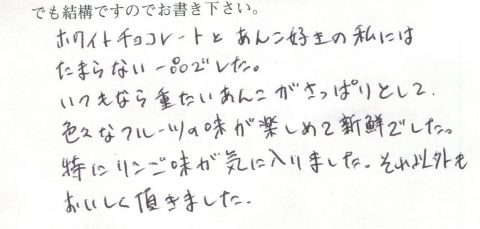 でも結構ですのでお書き下さい。
ホワイトチョコレートとあんこ好きの私には
たまらない一品でした。
いつもなら重たいあんこがさっぱりとして、
色々なフルーツの味が楽しめて新鮮でした。
特にリンゴ味が気に入りました。それ以外も
おいしく頂きました。